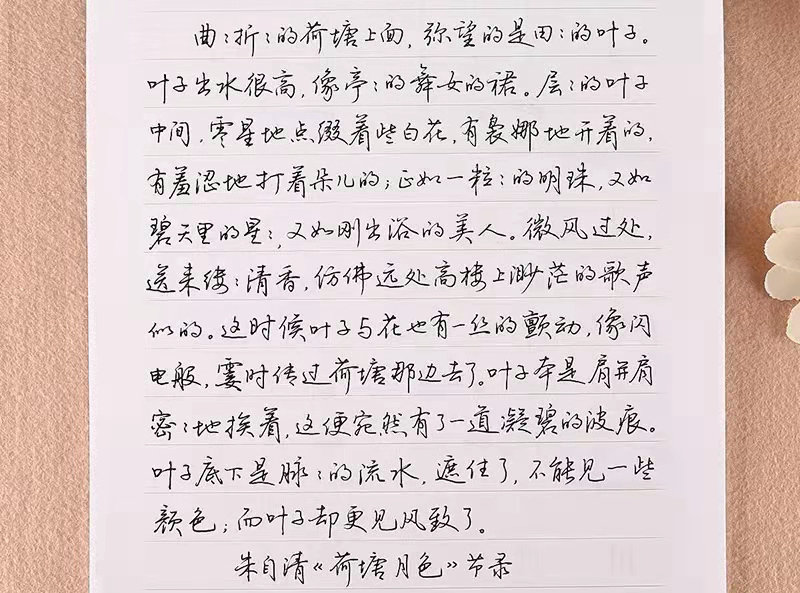 曲:折:的荷塘上面，弥望的是田:的叶子。
叶子出水很高，像亭:的舞女的裙。层:的叶子
中间，零星地点缀着些白花，有袅娜地开着的，
有羞涩地打着朵儿的；正如一粒:的明珠，又如
碧天里的星:，又如刚出浴的美人。微风过处，
送来缕:清香，仿佛远处高楼上渺茫的歌声
似的。这时候叶子与花也有一丝的颤动，像闪
电般，霎时传过荷塘那边去了。叶子本是肩并肩
密:地挨着，这便宛然有了一道凝碧的波痕。
叶子底下是脉:的流水，遮住了，不能见一些
颜色；而叶子却更见风致了。
朱自清《荷塘月色》节录